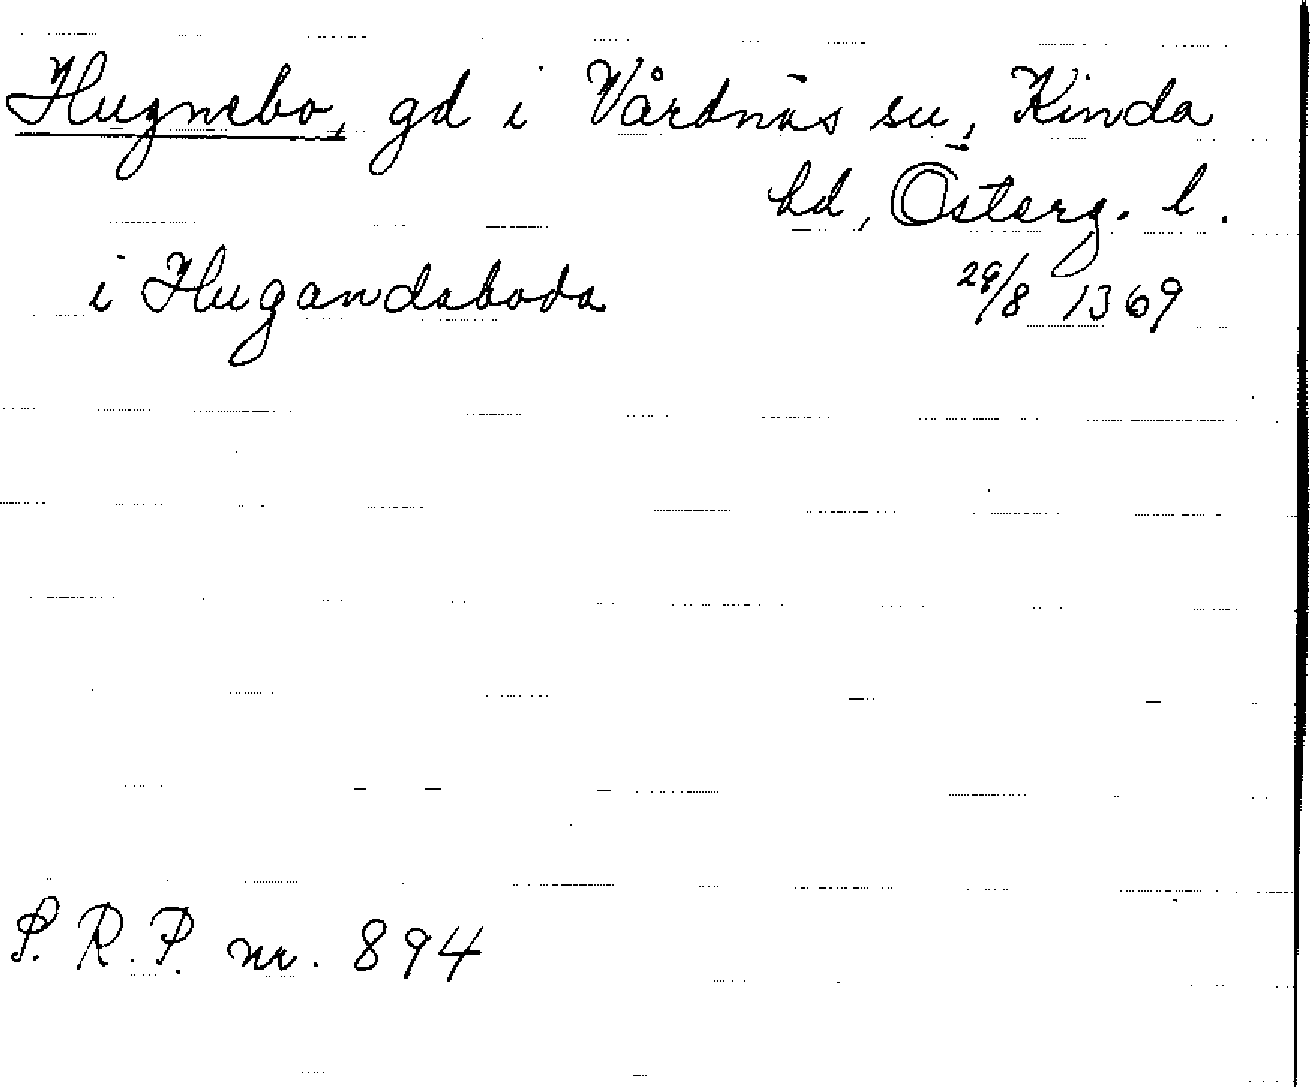 Hugnebo, gd i Vårdnäs sn, Kinda
hd, Österg. l.
i Hugandaboda 29/8 1369
S. R. P. nr. 894